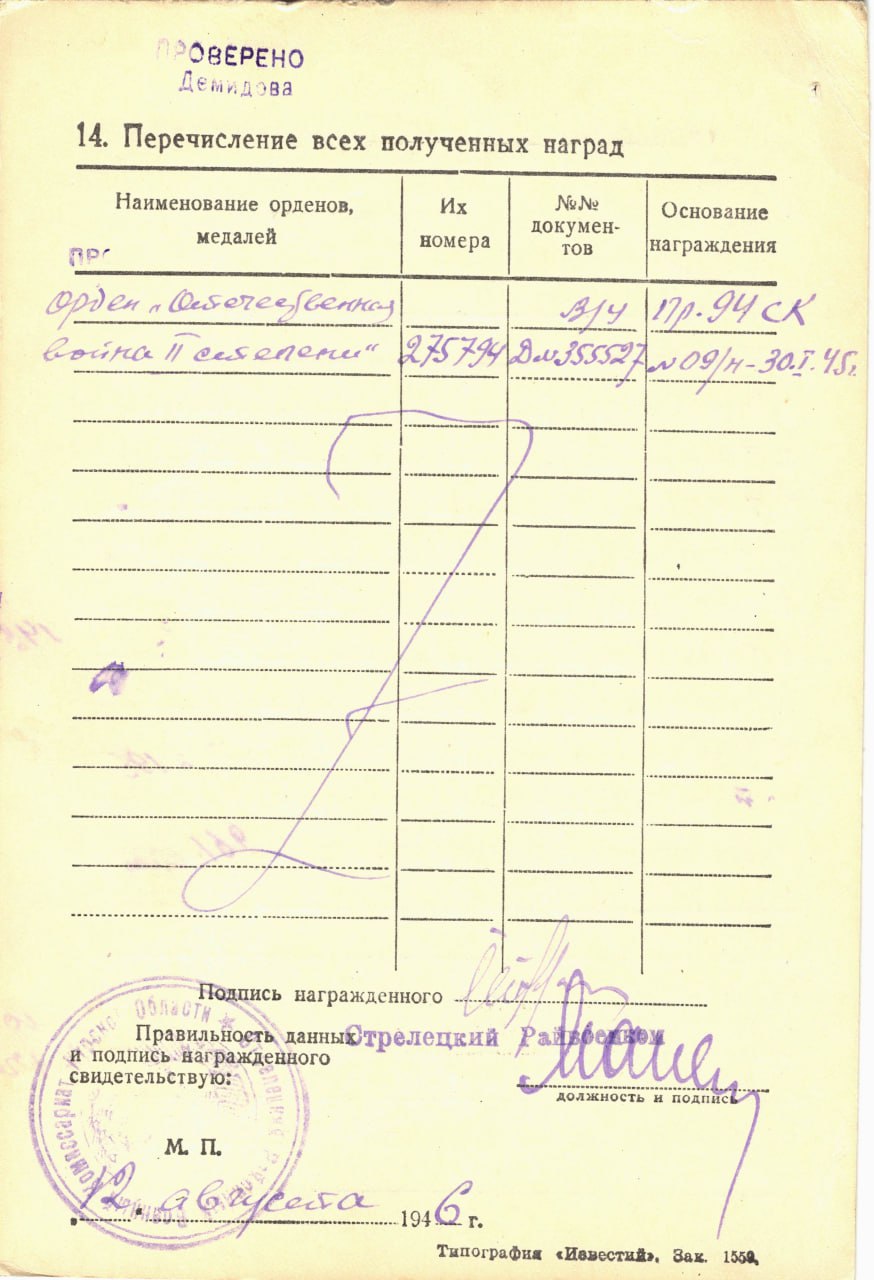 ПРОВЕРЕНО
Демидова
14. Перечисление всех полученных наград
Наименование орденов, медалей
Их номера
№№ докумен-
тов
Основание награждения
ПРО
Орден „Отечественная в/ч Пр. 94 СК
война II степени“ 275794 Д№355527 №09/н-30.I.45г.
Подпись награжденного
Правильность данных
и подпись награжденного
свидетельствую:
Стрелецкий Райвоенком
должность и подпись
М. П.
12. августа 1946 г.
Типография «Известий». Зак. 1559.